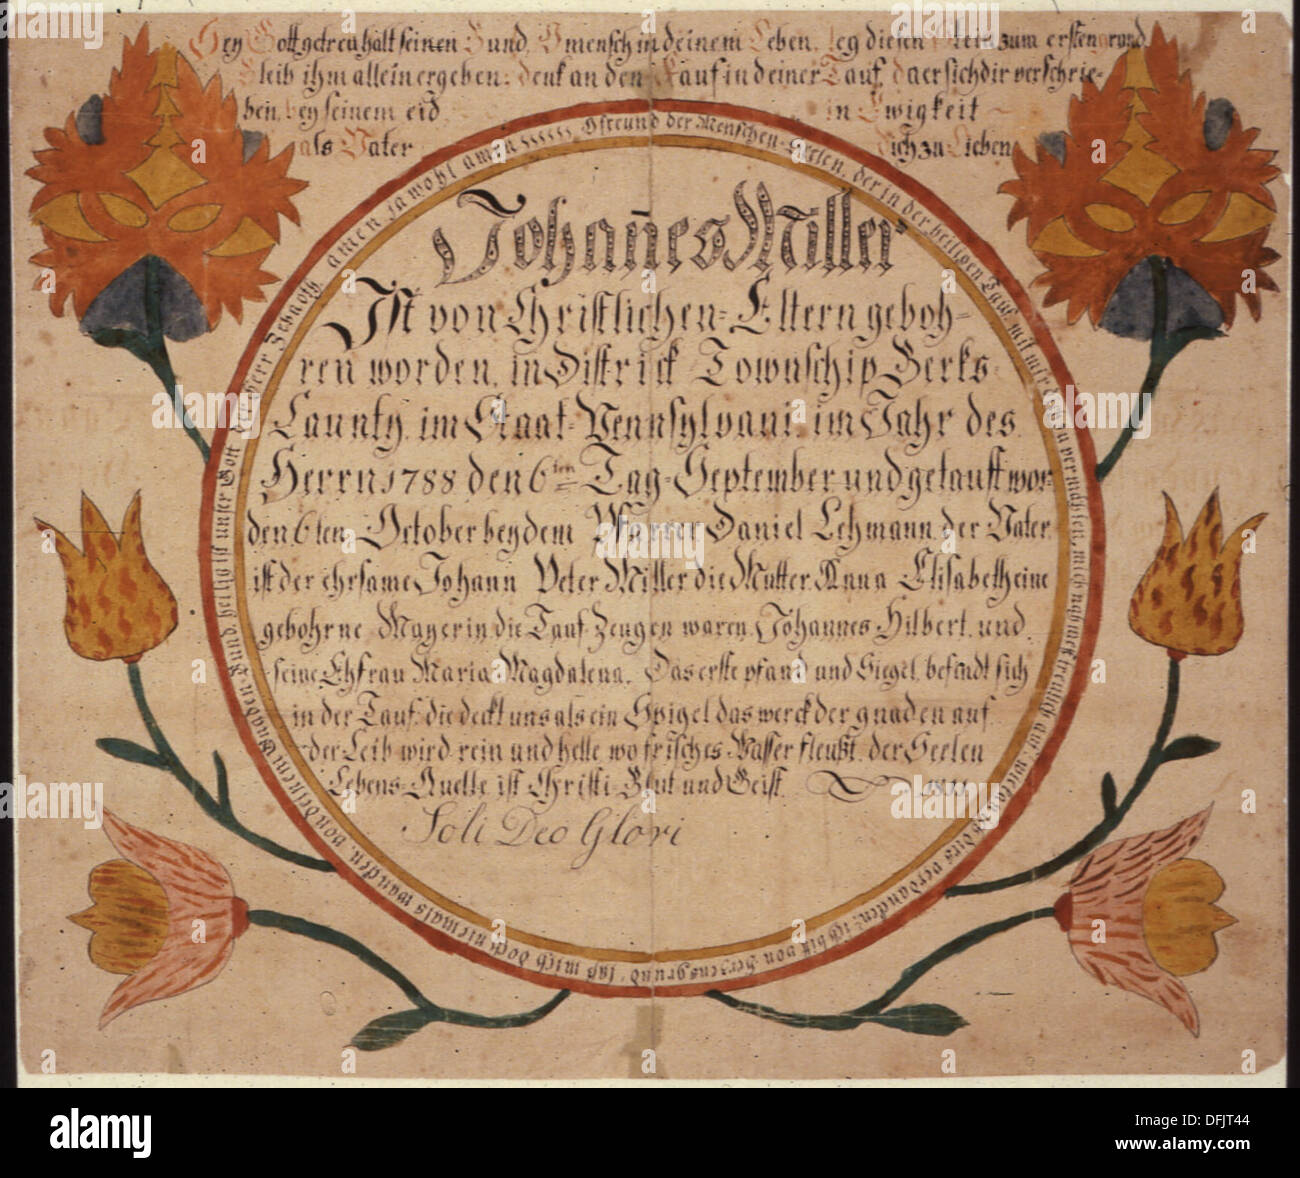 Sey Gott getreu halt seinen Bund, O mensch in deinem Leben, leg diesen Stein zum ersten grund
Bleib ihm allein ergeben: denk an den Kauf in deiner Tauf, da er sich dir verschrie=
ben, bey seinem eid in Ewigkeit
als Vater dich zu Lieben
O freund der Menschen-Seelen, der in der heiligen Tauf mit mir dich vermählen, mich nah
ich bin von Hertzens grund, laß mich doch niemals wanken, von deinem Gnaden-Bund, heilig ist unser Gott der Herr Zebaoth, amen, ja wohl amen
Johañes Miller
Ist von Christlichen=Eltern geboh=
ren worden, in District Townschip Berks=
Caunty, im Staat=Pennsylvani, im Jahr des
Herrn 1788 den 6ten Tag=September und getauft wor=
den 6ten October bey dem Pfarrer Daniel Lehmann, der Vater
ist der ehrsame Johann Peter Miller die Mutter Anna Elisabeth eine
gebohrne Mayerin, die Tauf-Zeugen waren, Johannes Hilbert, und
seine Ehfrau Maria Magdalena. Das erste pfand und Siegel, befindt sich
in der Tauf, die deckt uns als ein Spigel das werck der gnaden auf
der Leib wird rein und helle, wo frisches Wasser fleußt, der Seelen
Lebens=Quelle, ist Christi=Blut und Geist.
Soli Deo Glori
alamy
DFJT44
www.alamy.com